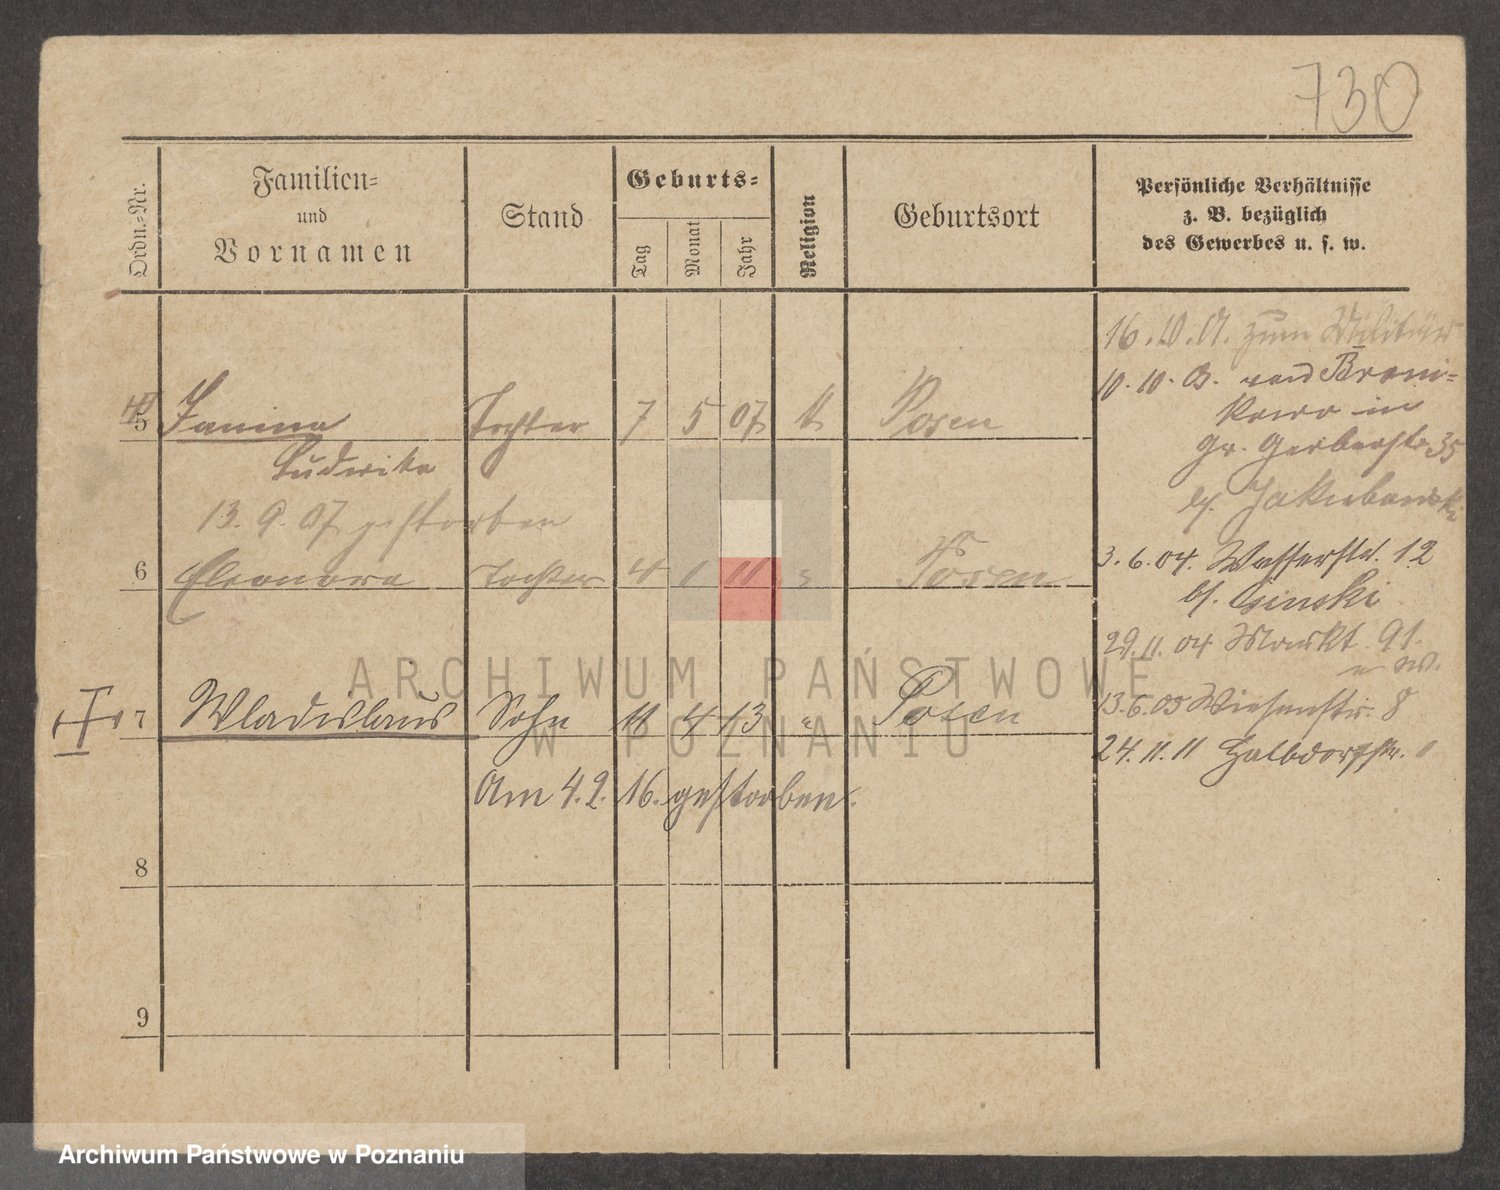 730
Ordn.-Nr.
Familien-
und
Vornamen
Stand
Geburts-
Tag
Monat
Jahr
Religion
Geburtsort
Persönliche Verhältnisse
z. B. bezüglich
des Gewerbes u. s. w.
5 Janina Tochter 7 5 07 Posen
Ludwika
13. 9. 07 gestorben
6 Eleonora Tochter 4 1 11 Posen
7 Wladislaus Sohn 18 4 13 " Posen
Am 4. 2. 16. gestorben.
8
9
16. 10. 01. zum Militär
10. 10. 03. von Broni-
kowo in
Gr. Gerberstr. 35
bf. Jakubowski
3. 6. 04. Wasserstr. 12
bf. Osinski
29. 11. 04 Markt 91.
13. 6. 05 Wiesenstr. 8
24. 11. 11 Halbdorfstr.
ARCHIWUM PAŃSTWOWE
W POZNANIU
Archiwum Państwowe w Poznaniu